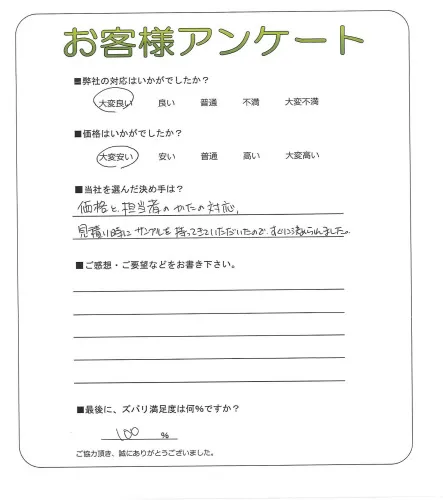 お客様アンケート
■弊社の対応はいかがでしたか？
大変良い 良い 普通 不満 大変不満
■価格はいかがでしたか？
大変安い 安い 普通 高い 大変高い
■当社を選んだ決め手は？
価格と、担当者のかたの対応、
見積り時にサンプルを持ってきていただいたので、すぐに決められました。
■ご感想・ご要望などをお書き下さい。
■最後に、ズバリ満足度は何％ですか？
100 ％
ご協力頂き、誠にありがとうございました。